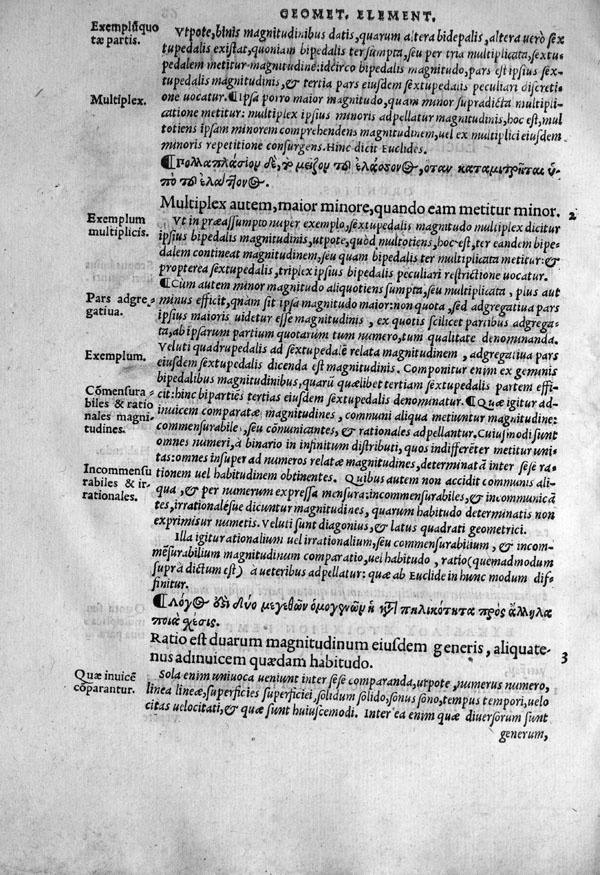 GEOMET. ELEMENT.
Exempl. quo
tæ partis.
Vtpote, binis magnitudinibus datis, quarum altera bidepalis, altera uerò sex
tupedalis existat, quoniam bipedalis ter sumpta, seu per tria multiplicata, sextu-
pedalem metitur magnitudinē: idcirco bipedalis magnitudo, pars est ipsius sex-
tupedalis magnitudinis, & tertia pars eiusdem sextupedalis peculiari discreti-
one uocatur. ¶Ipsa porro maior magnitudo, quam minor supradicta multipli-
catione metitur: multiplex ipsius minoris adpellatur magnitudinis, hoc est, mul
totiens ipsam minorem comprehendens magnitudinem, uel ex multiplici eiusdem
minoris repetitione consurgens. Hinc dicit Euclides.
Multiplex.
¶Πολλαπλάσιον δὲ, τὸ μεῖζον τοῦ ἐλάσσονος, ὅταν καταμετρῆται ὑ-
πὸ τοῦ ἐλάττονος.
Multiplex autem, maior minore, quando eam metitur minor. 2
Exemplum
multiplicis.
Vt in præassumpto nuper exemplo, sextupedalis magnitudo multiplex dicitur
ipsius bipedalis magnitudinis, utpote, quòd multotiens, hoc est, ter eandem bipe-
dalem contineat magnitudinem, seu quam bipedalis ter multiplicata metitur: &
propterea sextupedalis, triplex ipsius bipedalis peculiari restrictione uocatur.
¶Cùm autem minor magnitudo aliquotiens sumpta, seu multiplicata, plus aut
minus efficit, quàm sit ipsa magnitudo maior: non quota, sed adgregatiua pars
ipsius maioris uidetur esse magnitudinis, ex quotis scilicet partibus adgrega-
ta, ab ipsarum partium quotarum tum numero, tum qualitate denominanda.
Pars adgre-
gatiua.
Veluti quadrupedalis ad sextupedalē relata magnitudinem, adgregatiua pars
eiusdem sextupedalis dicenda est magnitudinis. Componitur enim ex geminis
bipedalibus magnitudinibus, quarū quælibet tertiam sextupedalis partem effi-
cit: hinc bipartiēs tertias eiusdem sextupedalis denominatur. ¶Quæ igitur ad-
Exemplum.
inuicem comparatæ magnitudines, communi aliqua metiuntur magnitudine:
commensurabiles, seu cōmunicantes, & rationales adpellantur. Cuiusmodi sunt
omnes numeri, à binario in infinitum distributi, quos indifferēter metitur uni-
tas: omnes insuper ad numeros relatæ magnitudines, determinatā inter sese ra-
Cōmensura
biles & ratio
nales magni-
tudines.
tionem uel habitudinem obtinentes. Quibus autem non accidit communis ali-
qua, & per numerum expressa mensura: incommensurabiles, & incommunicā
tes, irrationalésue dicuntur magnitudines, quarum habitudo determinatis non
exprimitur numeris. Veluti sunt diagonius, & latus quadrati geometrici.
Incommensu
rabiles & ir-
rationales.
Illa igitur rationalium uel irrationalium, seu commensurabilium, & incom-
mēsurabilium magnitudinum comparatio, uel habitudo, ratio (quemadmodum
suprà dictum est) à ueteribus adpellatur: quæ ab Euclide in hunc modum dif-
finitur.
¶Λόγος ἐστὶ δύο μεγεθῶν ὁμογενῶν ἡ κατὰ πηλικότητα πρὸς ἄλληλα
ποιὰ σχέσις.
Ratio est duarum magnitudinum eiusdem generis, aliquate-
nus adinuicem quædam habitudo. 3
Quæ inuicē
cōparantur.
Sola enim uniuoca ueniunt inter sese comparanda, utpote, numerus numero,
linea lineæ, superficies superficiei, solidum solido, sonus sono, tempus tempori, uelo
citas uelocitati, & quæ sunt huiuscemodi. Inter ea enim quæ diuersorum sunt
generum,